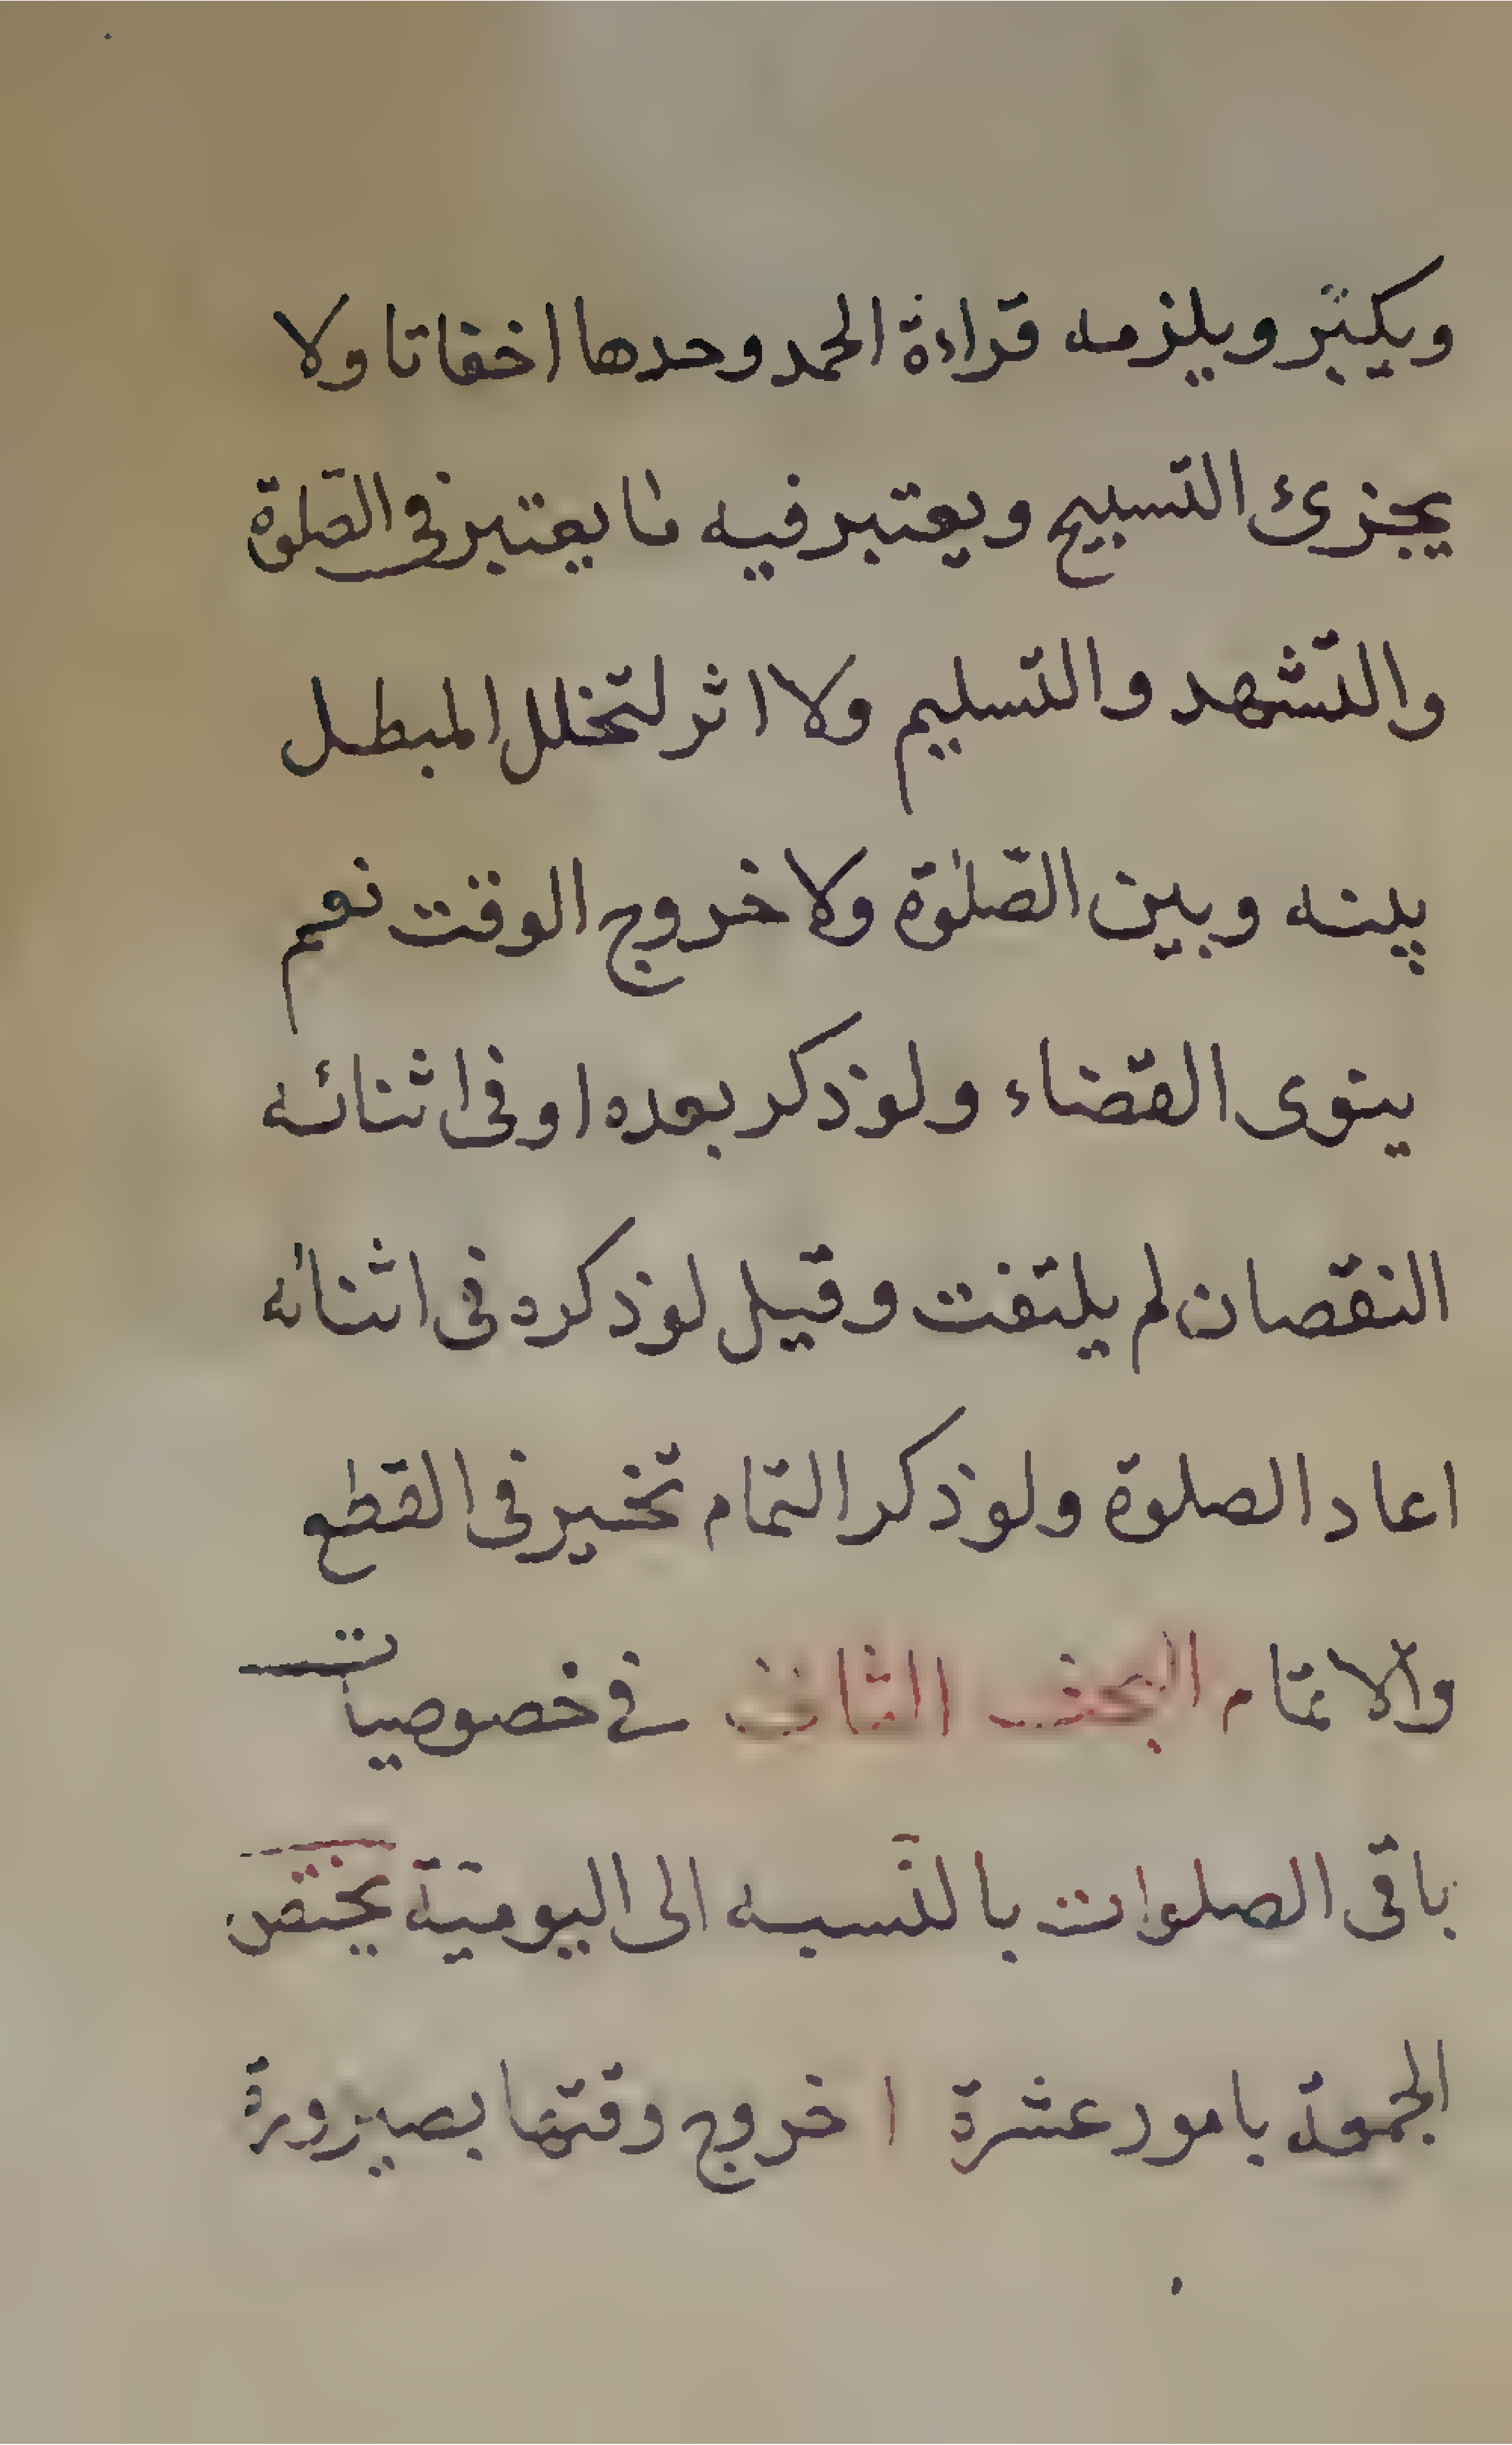 ويكبّر ويلزمه قراءة الحمد وحدها اخفاتا ولا
يجزئ التسبيح ويعتبر فيه ما يعتبر فى الصّلوة
والتّشهد والتّسليم ولا اثر لتخلل المبطل
بينه وبين الصّلوة ولا خروج الوقت نعم
ينوى القضاء ولو ذكر بعده او فى اثنائه
النقصان لم يلتفت وقيل لو ذكره فى اثنائه
اعاد الصلوة ولو ذكر التمام تخير فى القطع
والاتمام البحث الثانى فى خصوصيات
باقى الصلوات بالنّسبه الى اليوميّة يختص
الجمعة بامور عشرة ا خروج وقتها بصيرورة